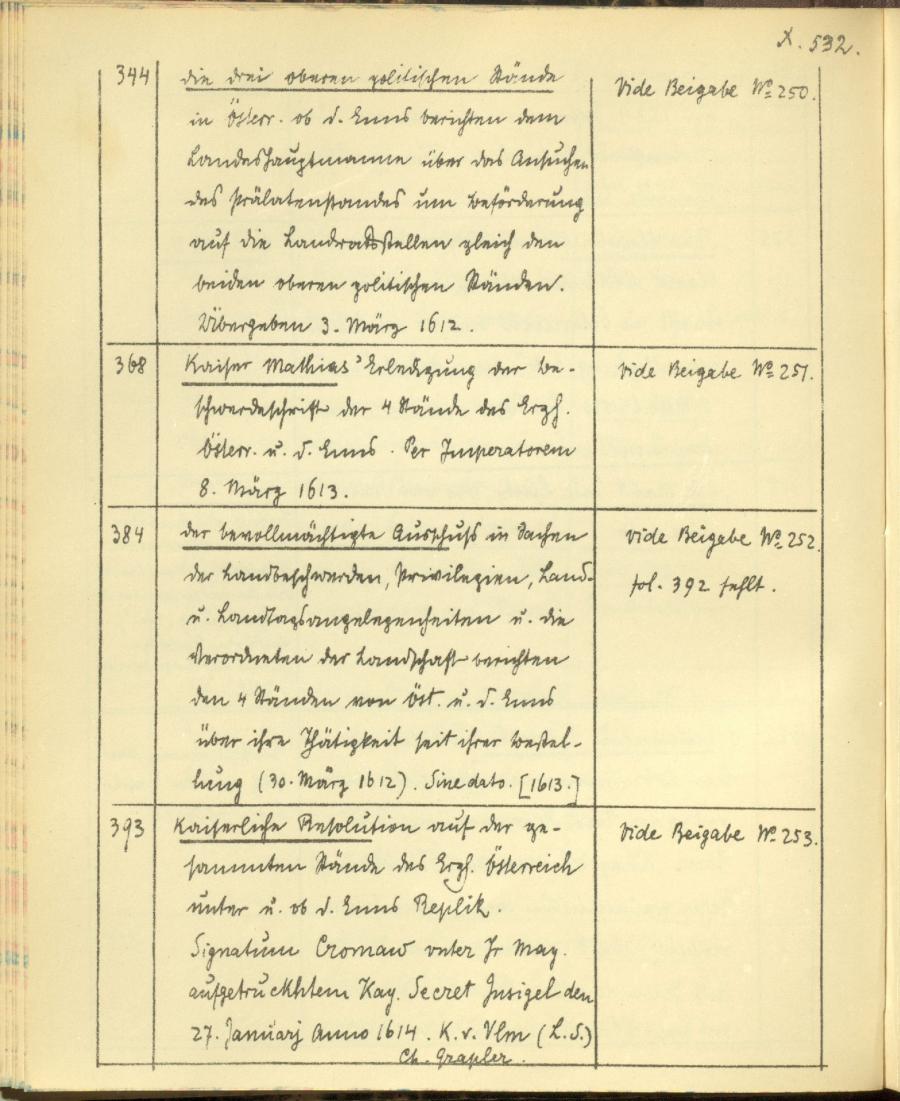 X. 532.
344 die drei oberen politischen Stände Vide Beigabe No 250.
in Österr. ob d. Enns berichten dem
Landeshauptmanne über das Ansuchen
des Prälatenstandes um Beförderung
auf die Landratsstellen gleich den
beiden oberen politischen Ständen.
Übergeben 3. März 1612.
368 Kaiser Mathias' Erledigung der Be- Vide Beigabe No 251.
schwerdeschrift der 4 Stände des Erzh.
Österr. u. d. Enns. Per Imperatorem
8. März 1613.
384 der bevollmächtigte Ausschuß in Sachen vide Beigabe No 252.
der Landbeschwerden, Privilegien, Land- fol. 392 fehlt.
u. Landtagsangelegenheiten u. die
Verordneten der Landschaft berichten
den 4 Ständen von Öst. u. d. Enns
über ihre Thätigkeit seit ihrer Bestel-
lung (30. März 1612). Sine dato. [1613.]
393 Kaiserliche Resolution auf der ge- Vide Beigabe No 253.
sammten Stände des Erzh. Österreich
unter u. ob d. Enns Replik.
Signatum Cromaw vnter Jr May.
aufgetruckhtem Kay. Secret Insigel den
27. Januarj Anno 1614. K. v. Vlm (L. S.)
Ch. Grapler.